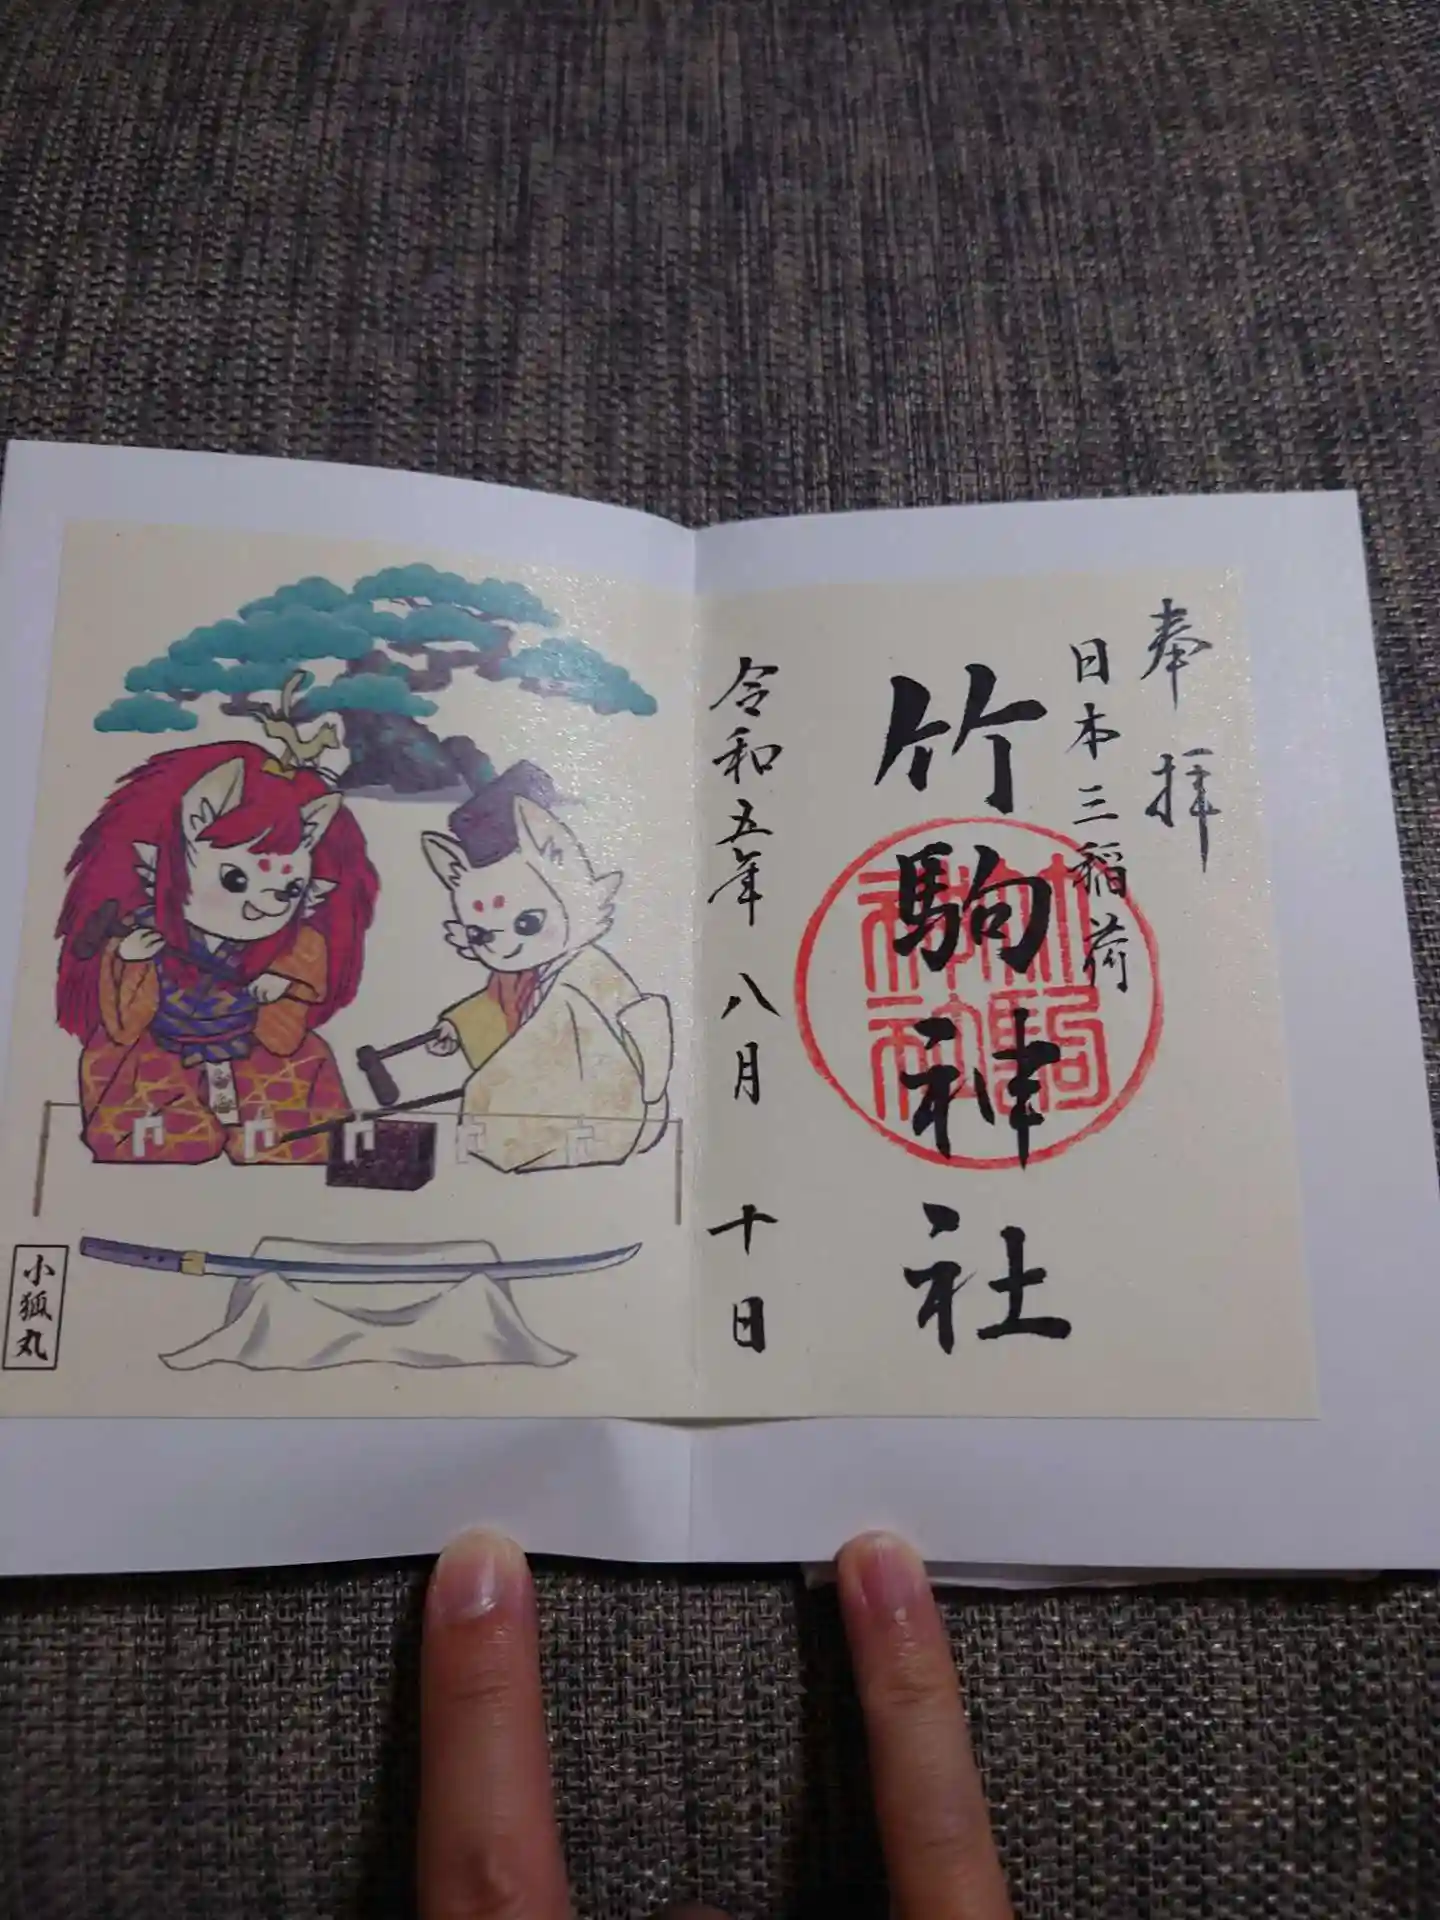 奉拝
日本三稲荷
竹駒神社
竹駒神社
令和五年 八月 十日
小狐丸